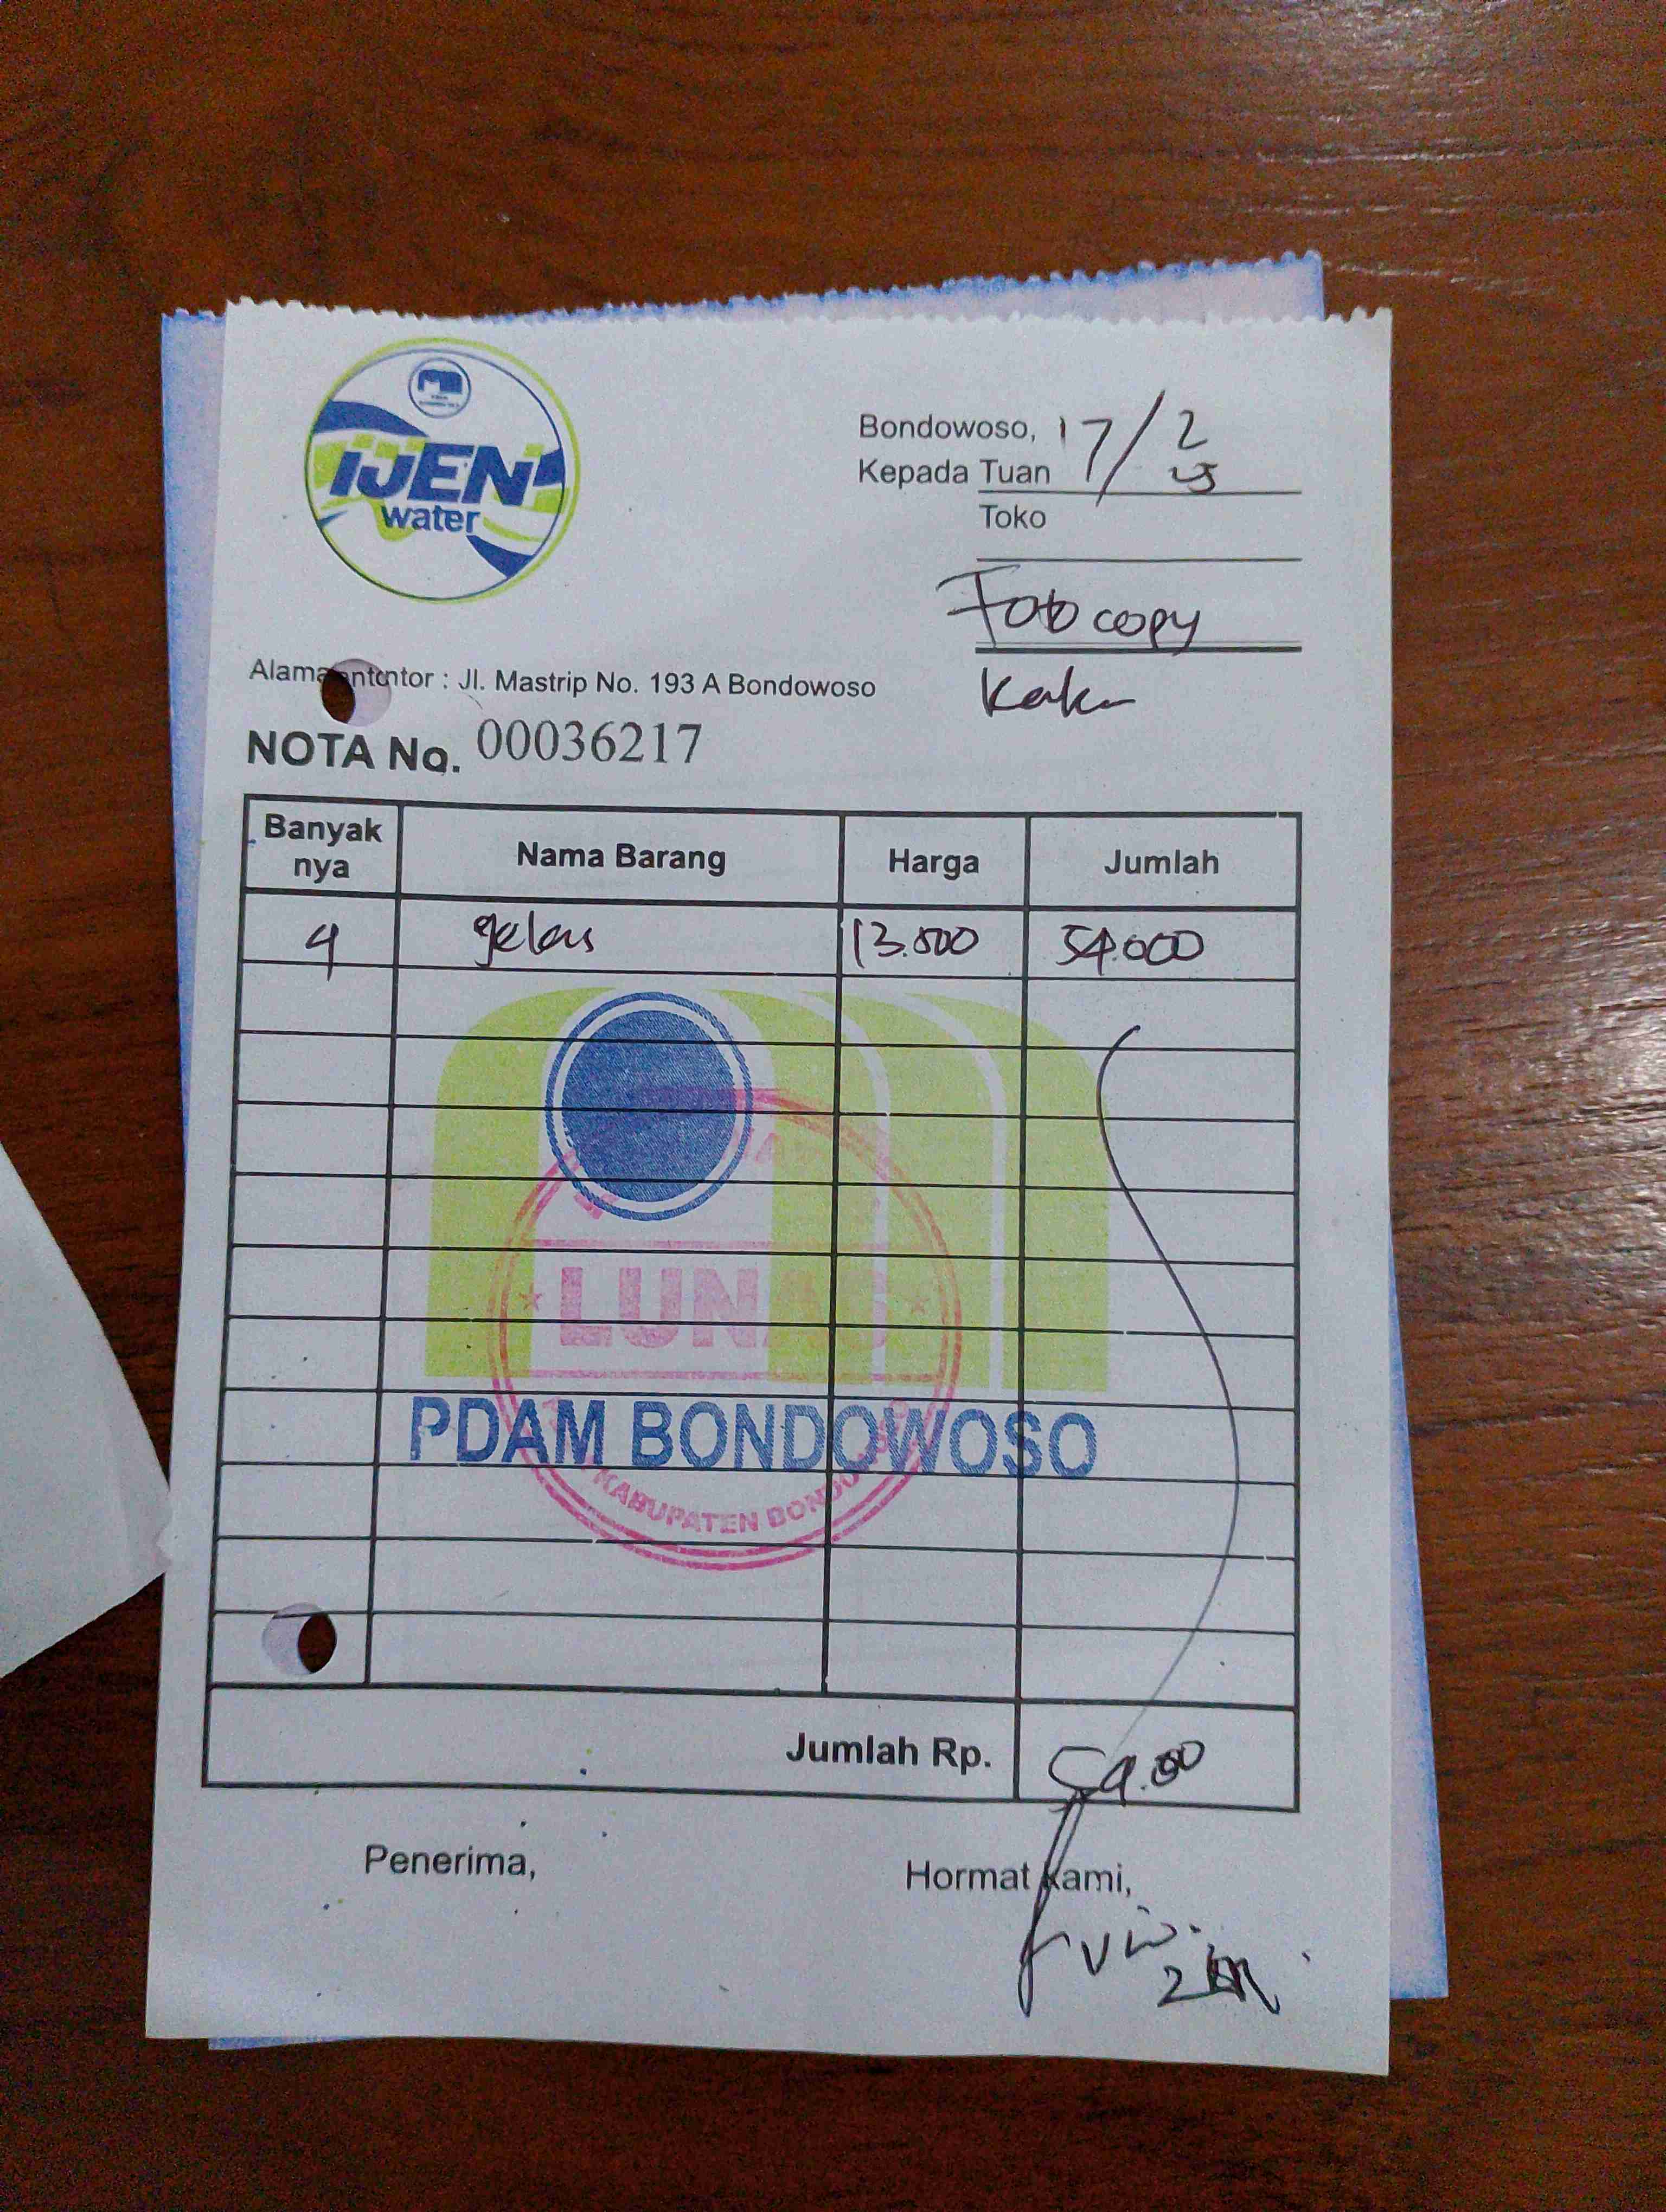 IJEN
water
Bondowoso, 17/2
25
Kepada Tuan
Toko
Fotocopy
Kaka
Alama ntor : Jl. Mastrip No. 193 A Bondowoso
NOTA No. 00036217
Banyak
nya
Nama Barang
Harga
Jumlah
4 gelas 13.500 54.000
LUNAS
PDAM BONDOWOSO
KABUPATEN BONDOWOSO
Jumlah Rp. 54.000
Penerima,
Hormat kami,